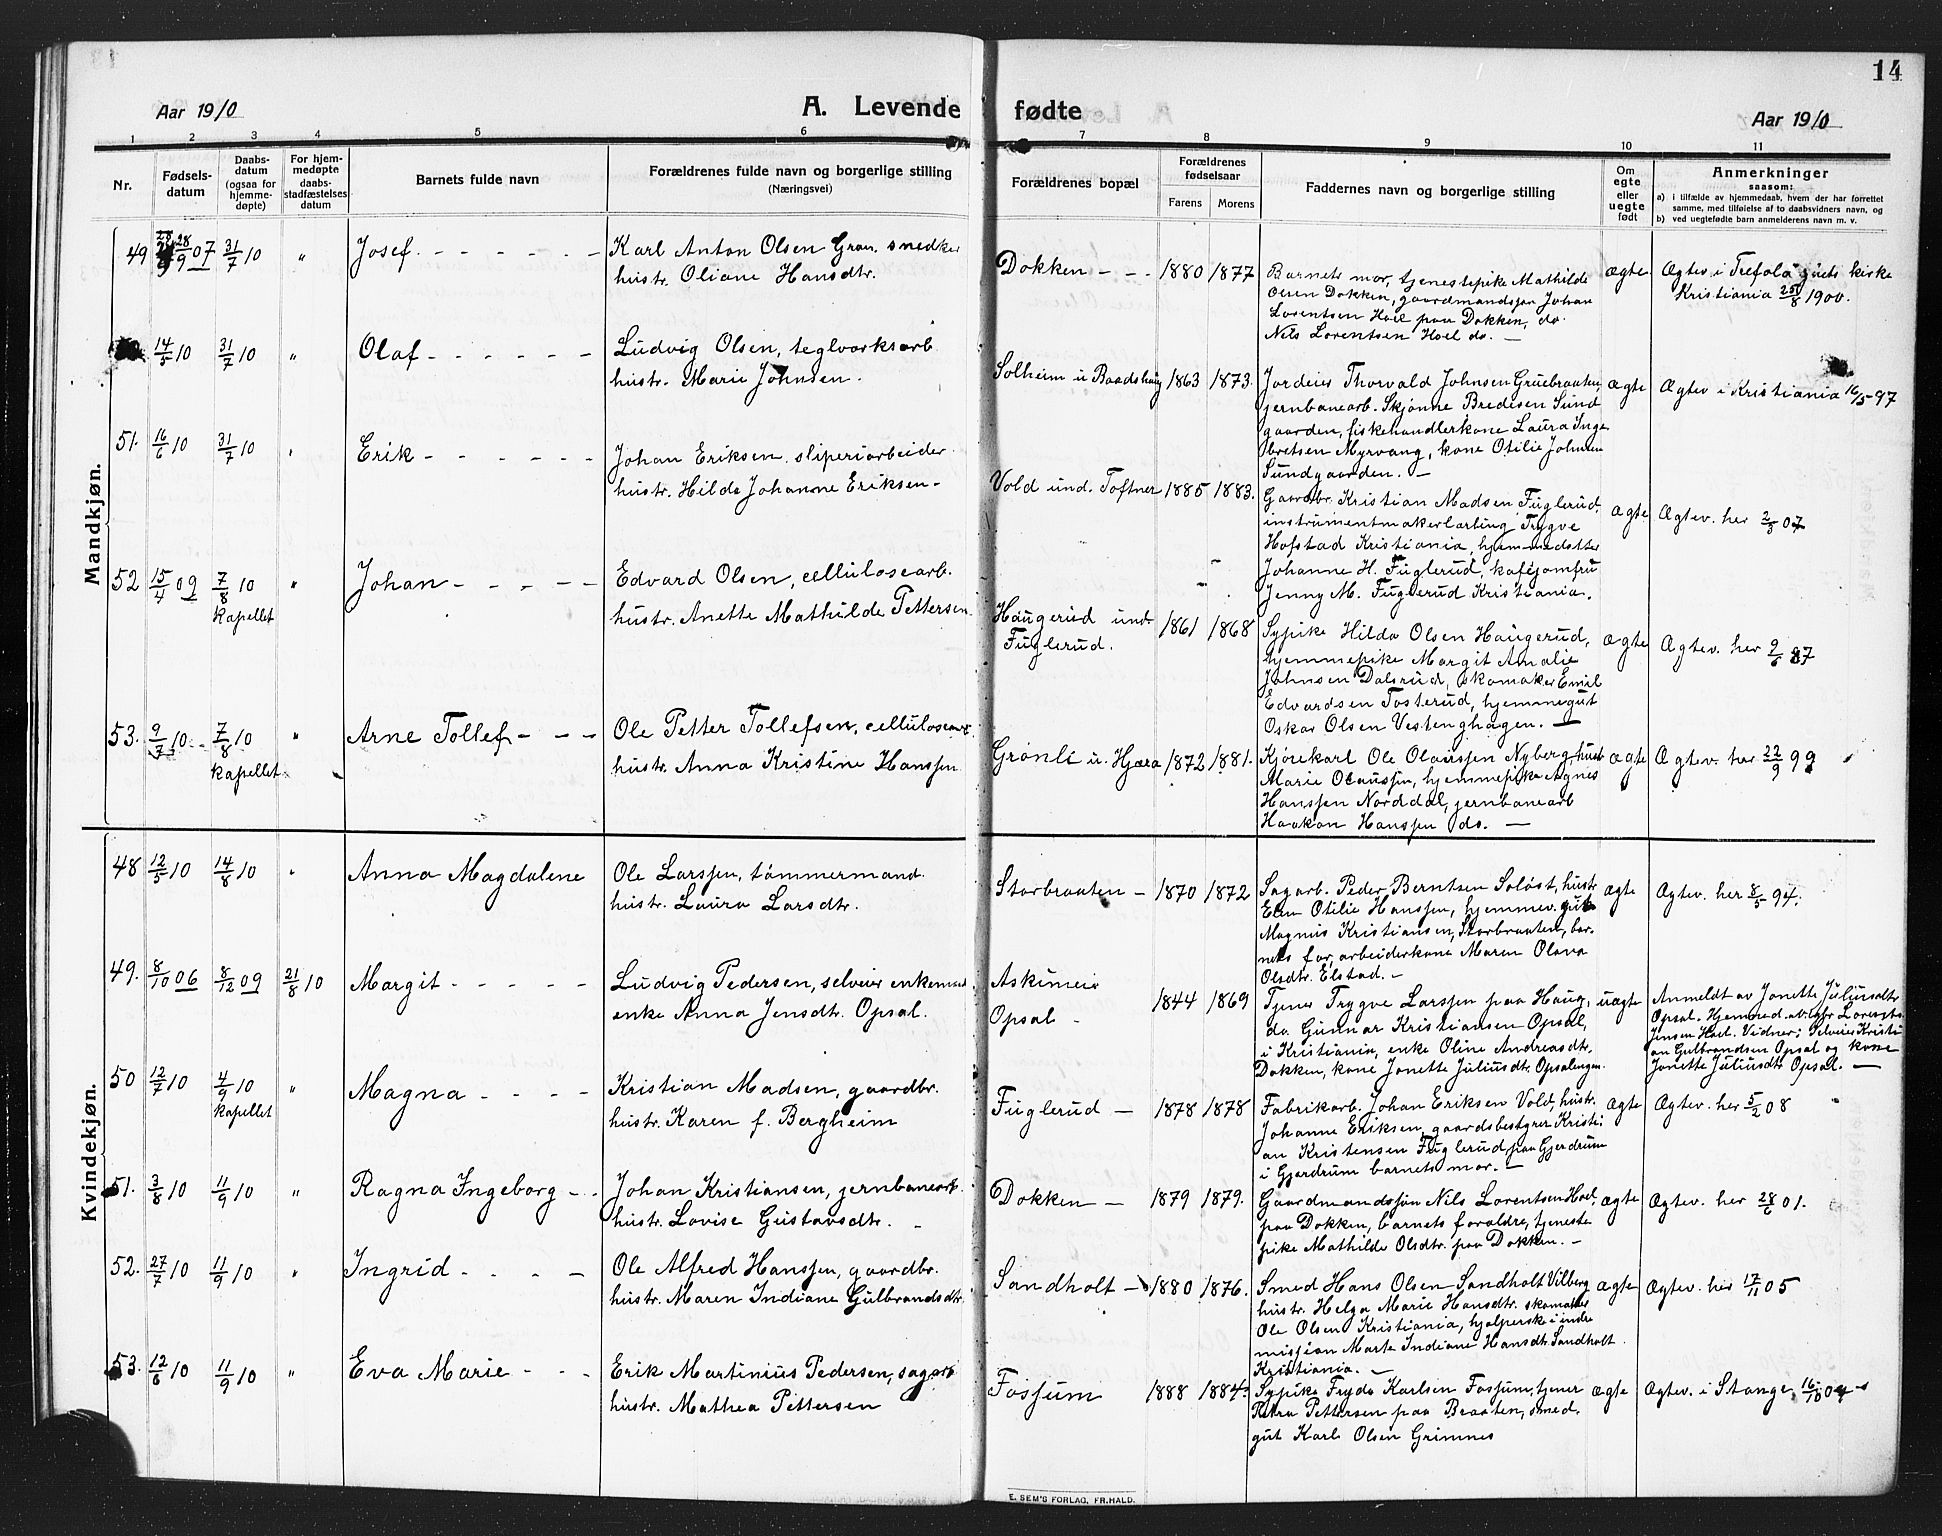 14
Aar 1910
A. Levende fødte
Aar 1910
1 2 3 4 5 6 7 8 9 10 11
Nr.
Fødsels-
datum
Daabs-
datum
(ogsaa for
hjemme-
døpte)
For hjem-
medøpte
daabs-
stadfæstelses
datum
Barnets fulde navn
Forældrenes fulde navn og borgerlige stilling
(Næringsvei)
Forældrenes bopæl
Forældrenes
fødselsaar
Farens Morens
Faddernes navn og borgerlige stilling
Om
egte
eller
uegte
født
Anmerkninger
saasom:
a) i tilfælde av hjemmedaab, hvem der har forrettet
samme, med tilføielse af to daabsvidners navn, og
b) ved uegtefødte barn anmelderens navn m. v.
Mandkjøn.
49 28/9 07 31/7 10 " Josef
Karl Anton Olsen Gran, snedker
hustr. Oliane Hansdtr.
Dokken 1880 1877
Barnets mor, tjenestepike Mathilde
Olsen Dokken, gaardmandssøn Johan
Lorentsen Hoel paa Dokken, do.
Nils Lorentsen Hoel do.
ægte
Ægtev. i Trefoldighets kirke
Kristiania 25/8 1900.
14/5 10 31/7 10 " Olaf
Ludvig Olsen, teglverksarb.
hustr. Marie Johnsen.
Solheim u. Baadshaug 1863 1873.
Jordeier Thorvald Johnsen Gruebraaten,
jernbanearb. Skjønne Bredesen Sund
gaarden, fiskehandlerkone Laura Inge
bretsen Myrvang, kone Otilie Johnsen
Sundgaarden.
ægte
Ægtev i Kristiania 16/5 97
51. 16/6 10 31/7 10 Erik
Johan Eriksen, sliperiarbeider.
hustr. Hilda Johanne Eriksen
Vold und. Toftner 1885 1883.
Gaardbr. Kristian Madsen Fuglerud,
instrumentmakerlærling Trygve
Hofstad Kristiania, hjemmedatter
Johanne H. Fuglerud, kaféjomfru
Jenny M. Fuglerud Kristiania.
ægte
Ægtev. her 2/3 07
52 15/4 09 7/8 10 " Johan
kapellet
Edvard Olsen, cellulosearb.
hustr. Anette Mathilde Pettersen
Haugerud und.
Fuglerud.
1861 1868
Sypike Hilda Olsen Haugerud,
hjemmepike Margit Amalie
Johnsen Dalsrud, skomaker Emil
Edvardsen Tosterud, hjemmegut
Oskar Olsen Vestenghagen.
ægte
Ægtev. her 9/6 87
53. 9/7 10 7/8 10 " Arne Tollef
kapellet
Ole Petter Tollefsen, cellulosearb.
hustr. Anna Kristine Hanssen
Grønli u. Hjæra 1872 1881.
Kjørekarl Ole Olaussen Nyberg, hustr.
Marie Olaussen, hjemmepike Agnes
Hanssen Norddal, jernbanearb
Haakon Hanssen do.
ægte
Ægtev. her 22/9 99
Kvindekjøn.
48 12/5 10 14/8 10 Anna Magdalene
Ole Larssen, tømmermand.
hustr. Laura Larsdtr.
Storbraaten 1870 1872
Sagarb. Peder Berntsen Soløst, hustr
Otilie Hanssen, hjemmev. gut
Magnus Kristiansen, Storbraaten, bar-
nets far, arbeiderkone Maren Olava
Olsdtr. Elstad.
ægte
Ægtev. her 8/5 94.
49. 8/10 06 8/12 09 21/8 10 Margit
Ludvig Pedersen, selveier enkemand,
enke Anna Jensdtr. Opsal.
Askimeie
Opsal
1844 1869
Tjener Trygve Larssen paa Haug,
do Gunnar Kristiansen Opsal,
i Kristiania, enke Oline Andreasdtr.
Dokken, kone Jonette Juliusdtr. Opsalengen.
uægte
Anmeldt av Jonette Juliusdtr
Opsal. Hjemmed. av Lorents
Jensen Hoel. Vidner: Selveier Kristi
an Gulbrandsen Opsal og kone
Jonette Juliusdtr Opsal.
50 12/7 10 4/9 10 " Magna
kapellet
Kristian Madsen, gaardbr.
hustr. Karen f. Bergheim
Fuglerud 1878 1878
Fabrikarb. Johan Eriksen Vold, hustr.
Johanne Eriksen, gaardsbestyrer Kristi-
an Kristensen Fuglerud, paa Gjerdrum
i Gjerdrum barnets mor.
ægte
Ægtev. her 5/2 08
51. 3/8 10 11/9 10 " Ragna Ingeborg
Johan Kristiansen, jernbanearb.
hustr. Lovise Gustavsdtr.
Dokken 1879 1879.
Gaardmandssøn Nils Lorentsen Hoel
paa Dokken, barnets forældre, tjeneste
pike Mathilde Olsdtr. paa Dokken.
ægte
Ægtev. her 28/6 01.
52. 27/7 10 11/9 10 " Ingrid
Ole Alfred Hanssen, gaardbr.
hustr. Maren Indiane Gulbrandsdtr.
Sandholt 1880 1876.
Smed Hans Olsen Sandholt Vilberg
hustr. Helga Marie Hansdtr. skomaker
Ole Olsen Kristiania, hjælperske i indre
mission Marte Indiane Hansdtr Sandholt
Kristiania.
ægte
Ægtev. her 17/11 05
53. 12/6 10 11/9 10 " Eva Marie
Erik Martinius Pedersen, sagarb
hustr. Mathea Pettersen
Fossum 1888 1884.
Sypike Fryda Karlsen Fossum, tjener
Petra Pettersen paa Braaten, smed.
gut Karl Olsen Grimnes
ægte
Ægtev. i Stange 16/10 04
E. SEM'S FORLAG, FR.HALD.